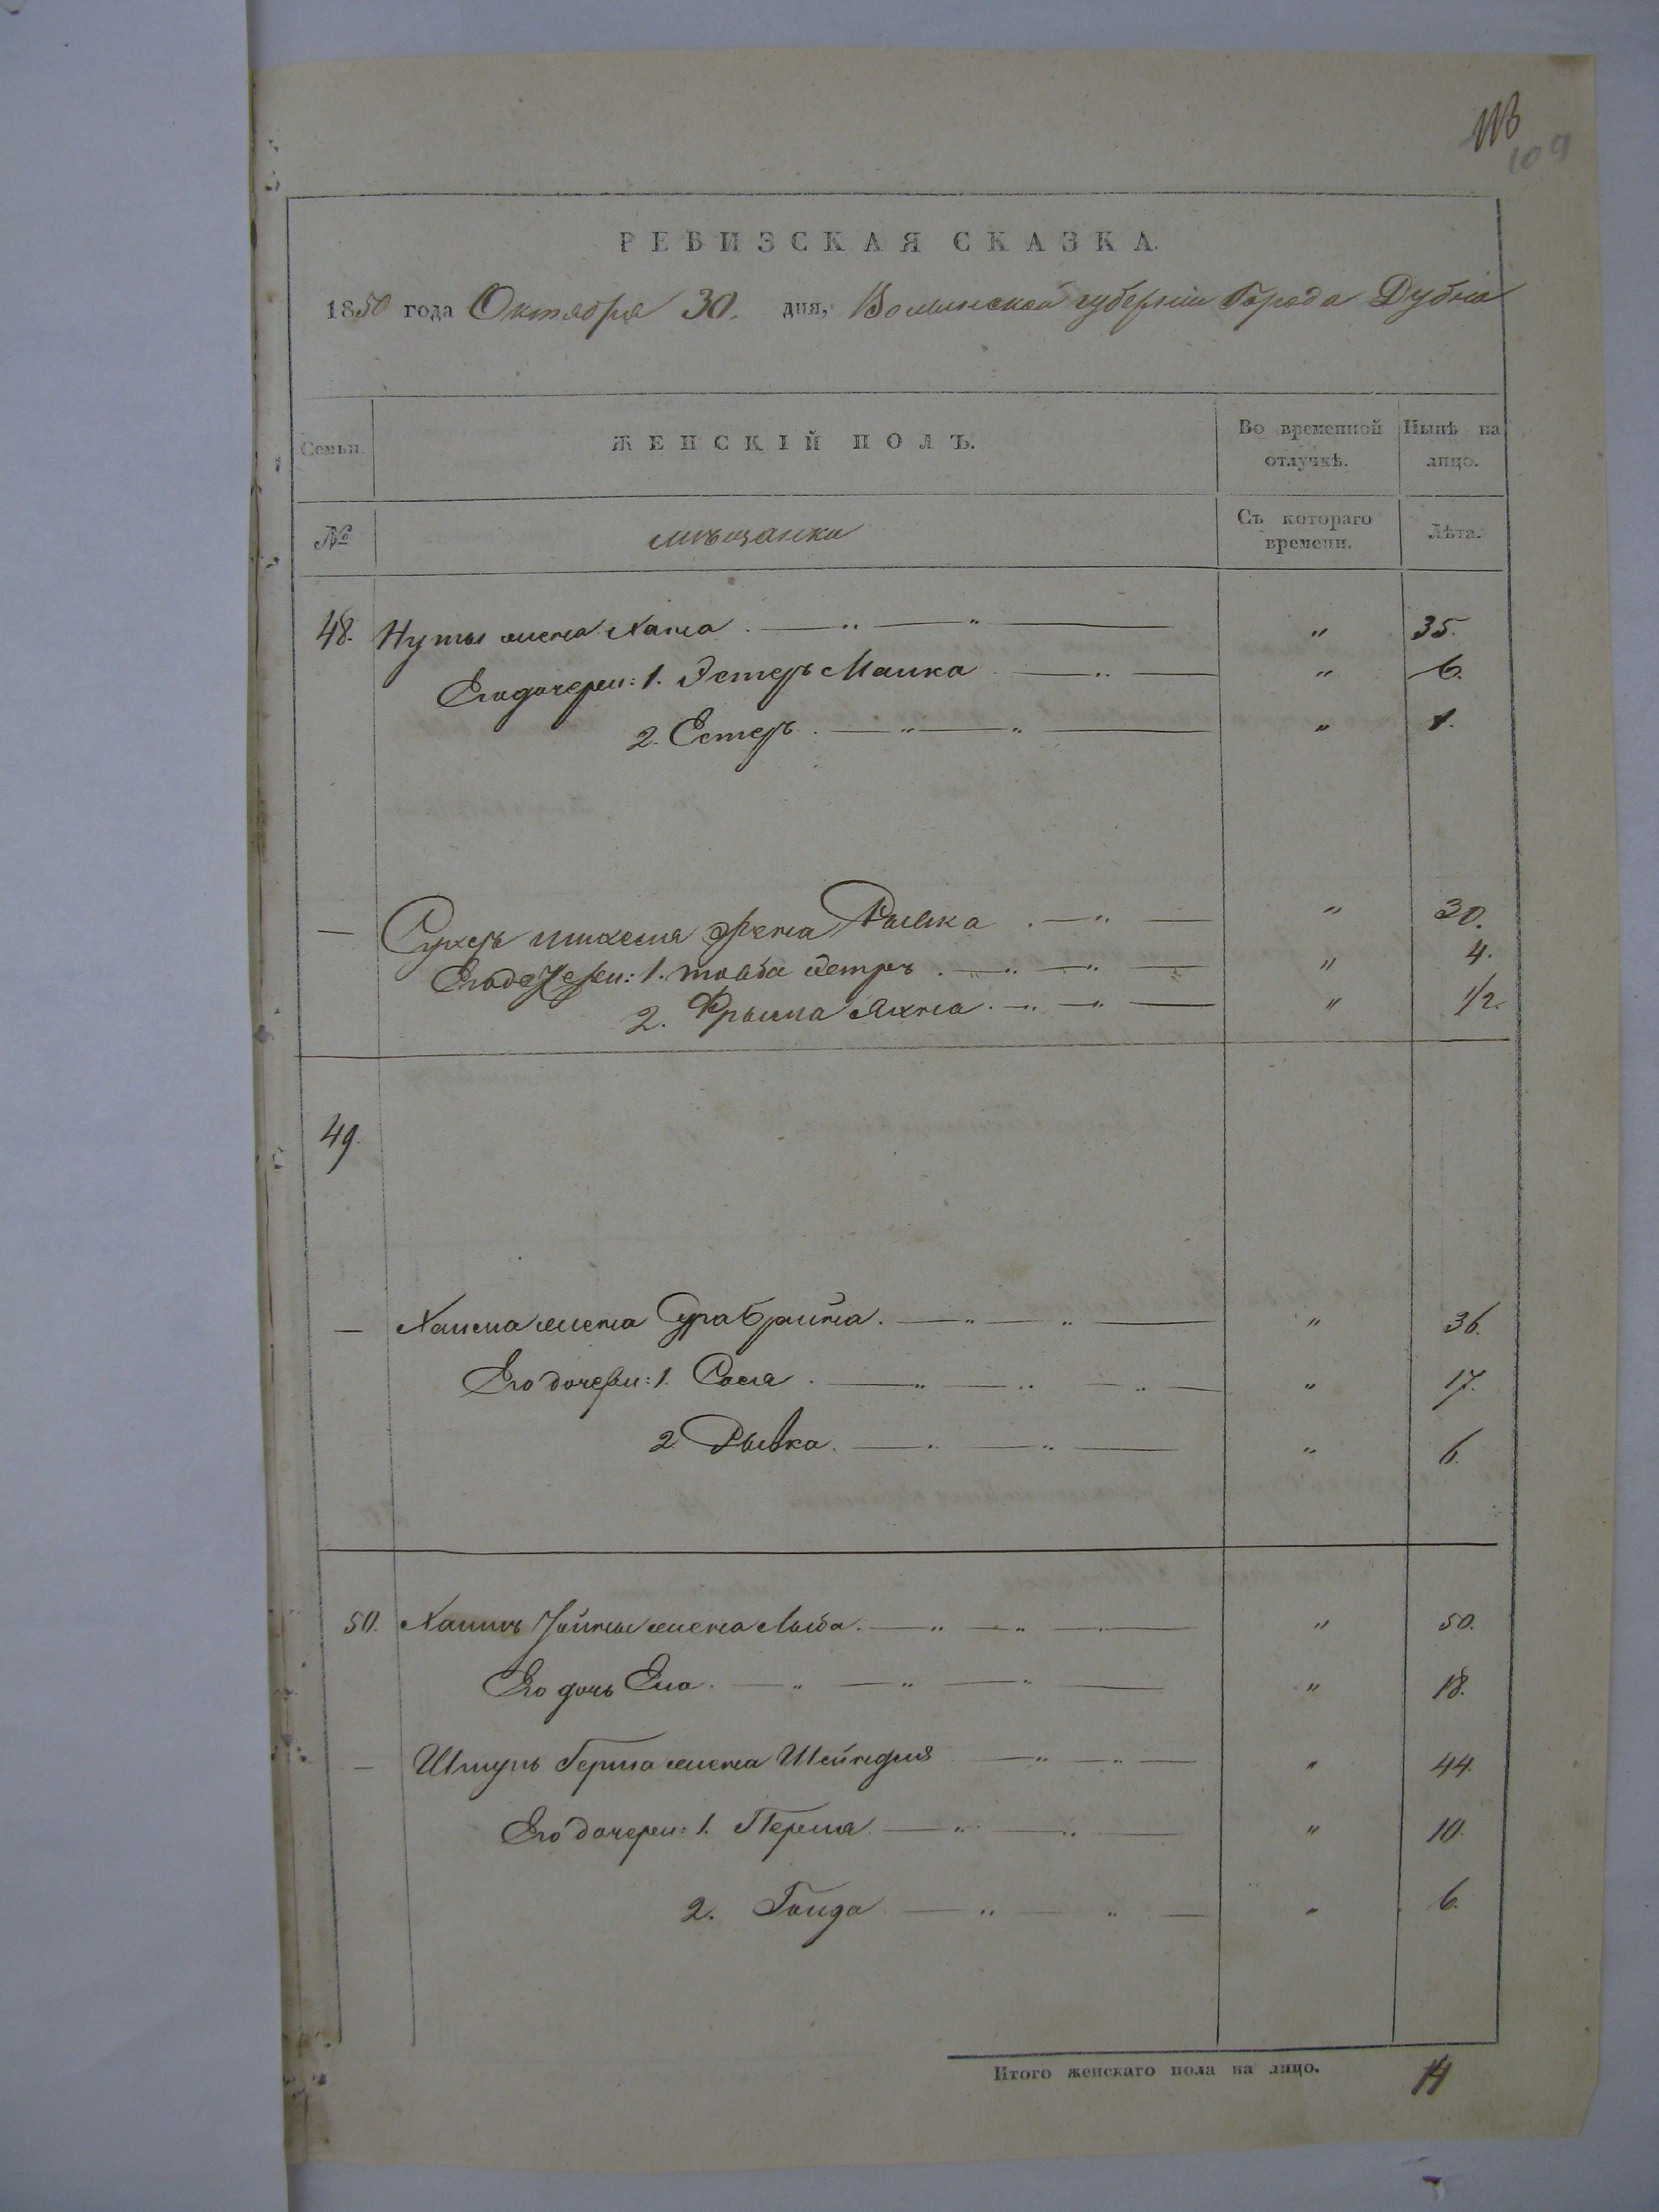 113
109
РЕВИЗСКАЯ СКАЗКА.
1850 года Октября 30. дня, Волынской губернии Города Дубна
Семьи. ЖЕНСКІЙ ПОЛЪ. Во временной отлучкѣ. Нынѣ на лицо.
№ мѣщанки Съ котораго времени. Лѣта.
48. Нуты жена Хана " 35.
Его дочери: 1. Эстеръ Малка " 6.
2. Естеръ " 1.
— Сухеръ жена Рывка " 30.
Его дочери: 1. " 4.
2. " 1/2.
49.
— Хаима жена Сура Брайна " 36.
Его дочери: 1. Сося " 17.
2. Рывка " 6.
50. Хаимъ жена Лыба " 50.
Его дочь " 18.
— Шмуль Герша жена Шейндля " 44.
Его дочери: 1. Перля " 10.
2. " 6.
Итого женскаго пола на лицо. 14